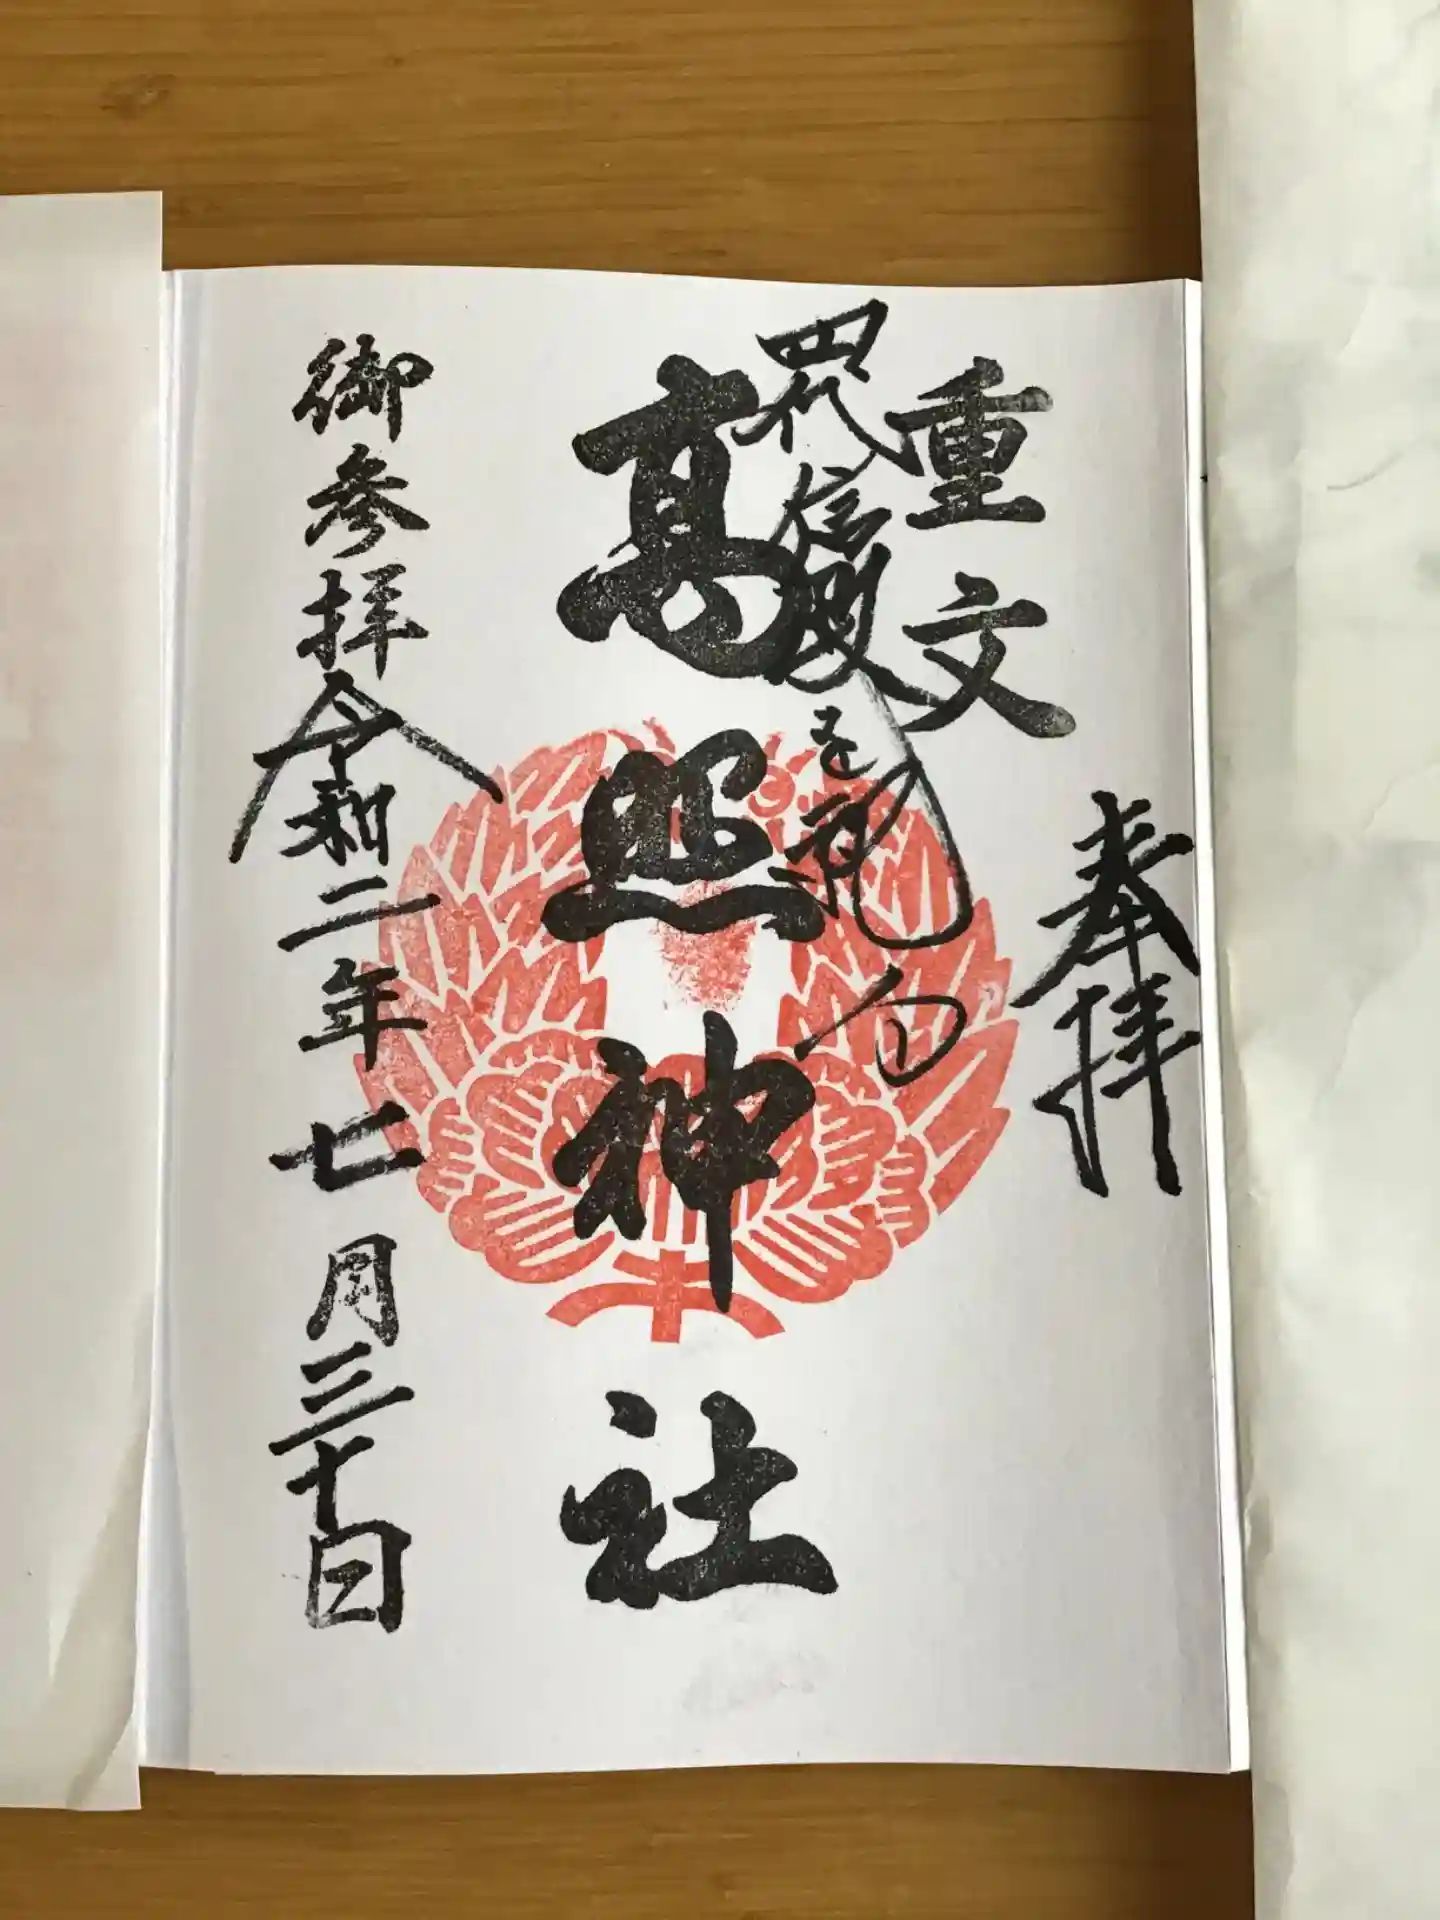 奉拝
重文
四代信政を祀る
高照神社
御参拝令和二年七月三十日